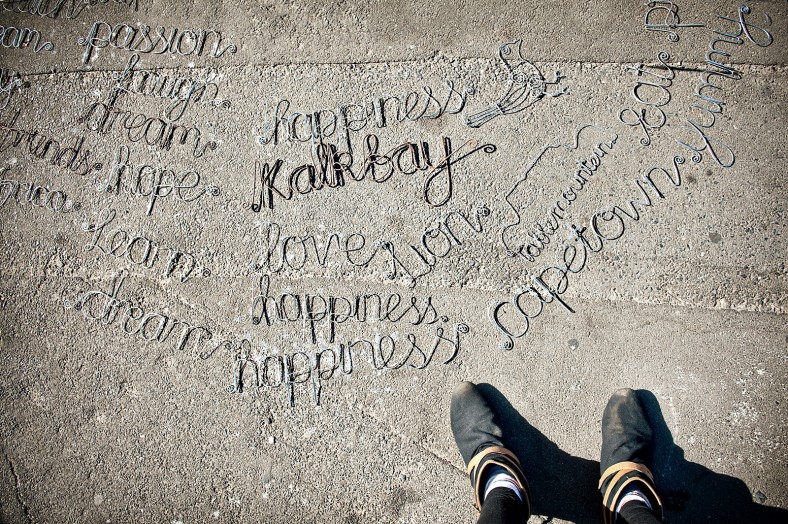 passion
laugh
dream
hope
Learn
dream
happiness
Kalkbay
love
Lion
happiness
happiness
table mountain
capetown
eat
yummy